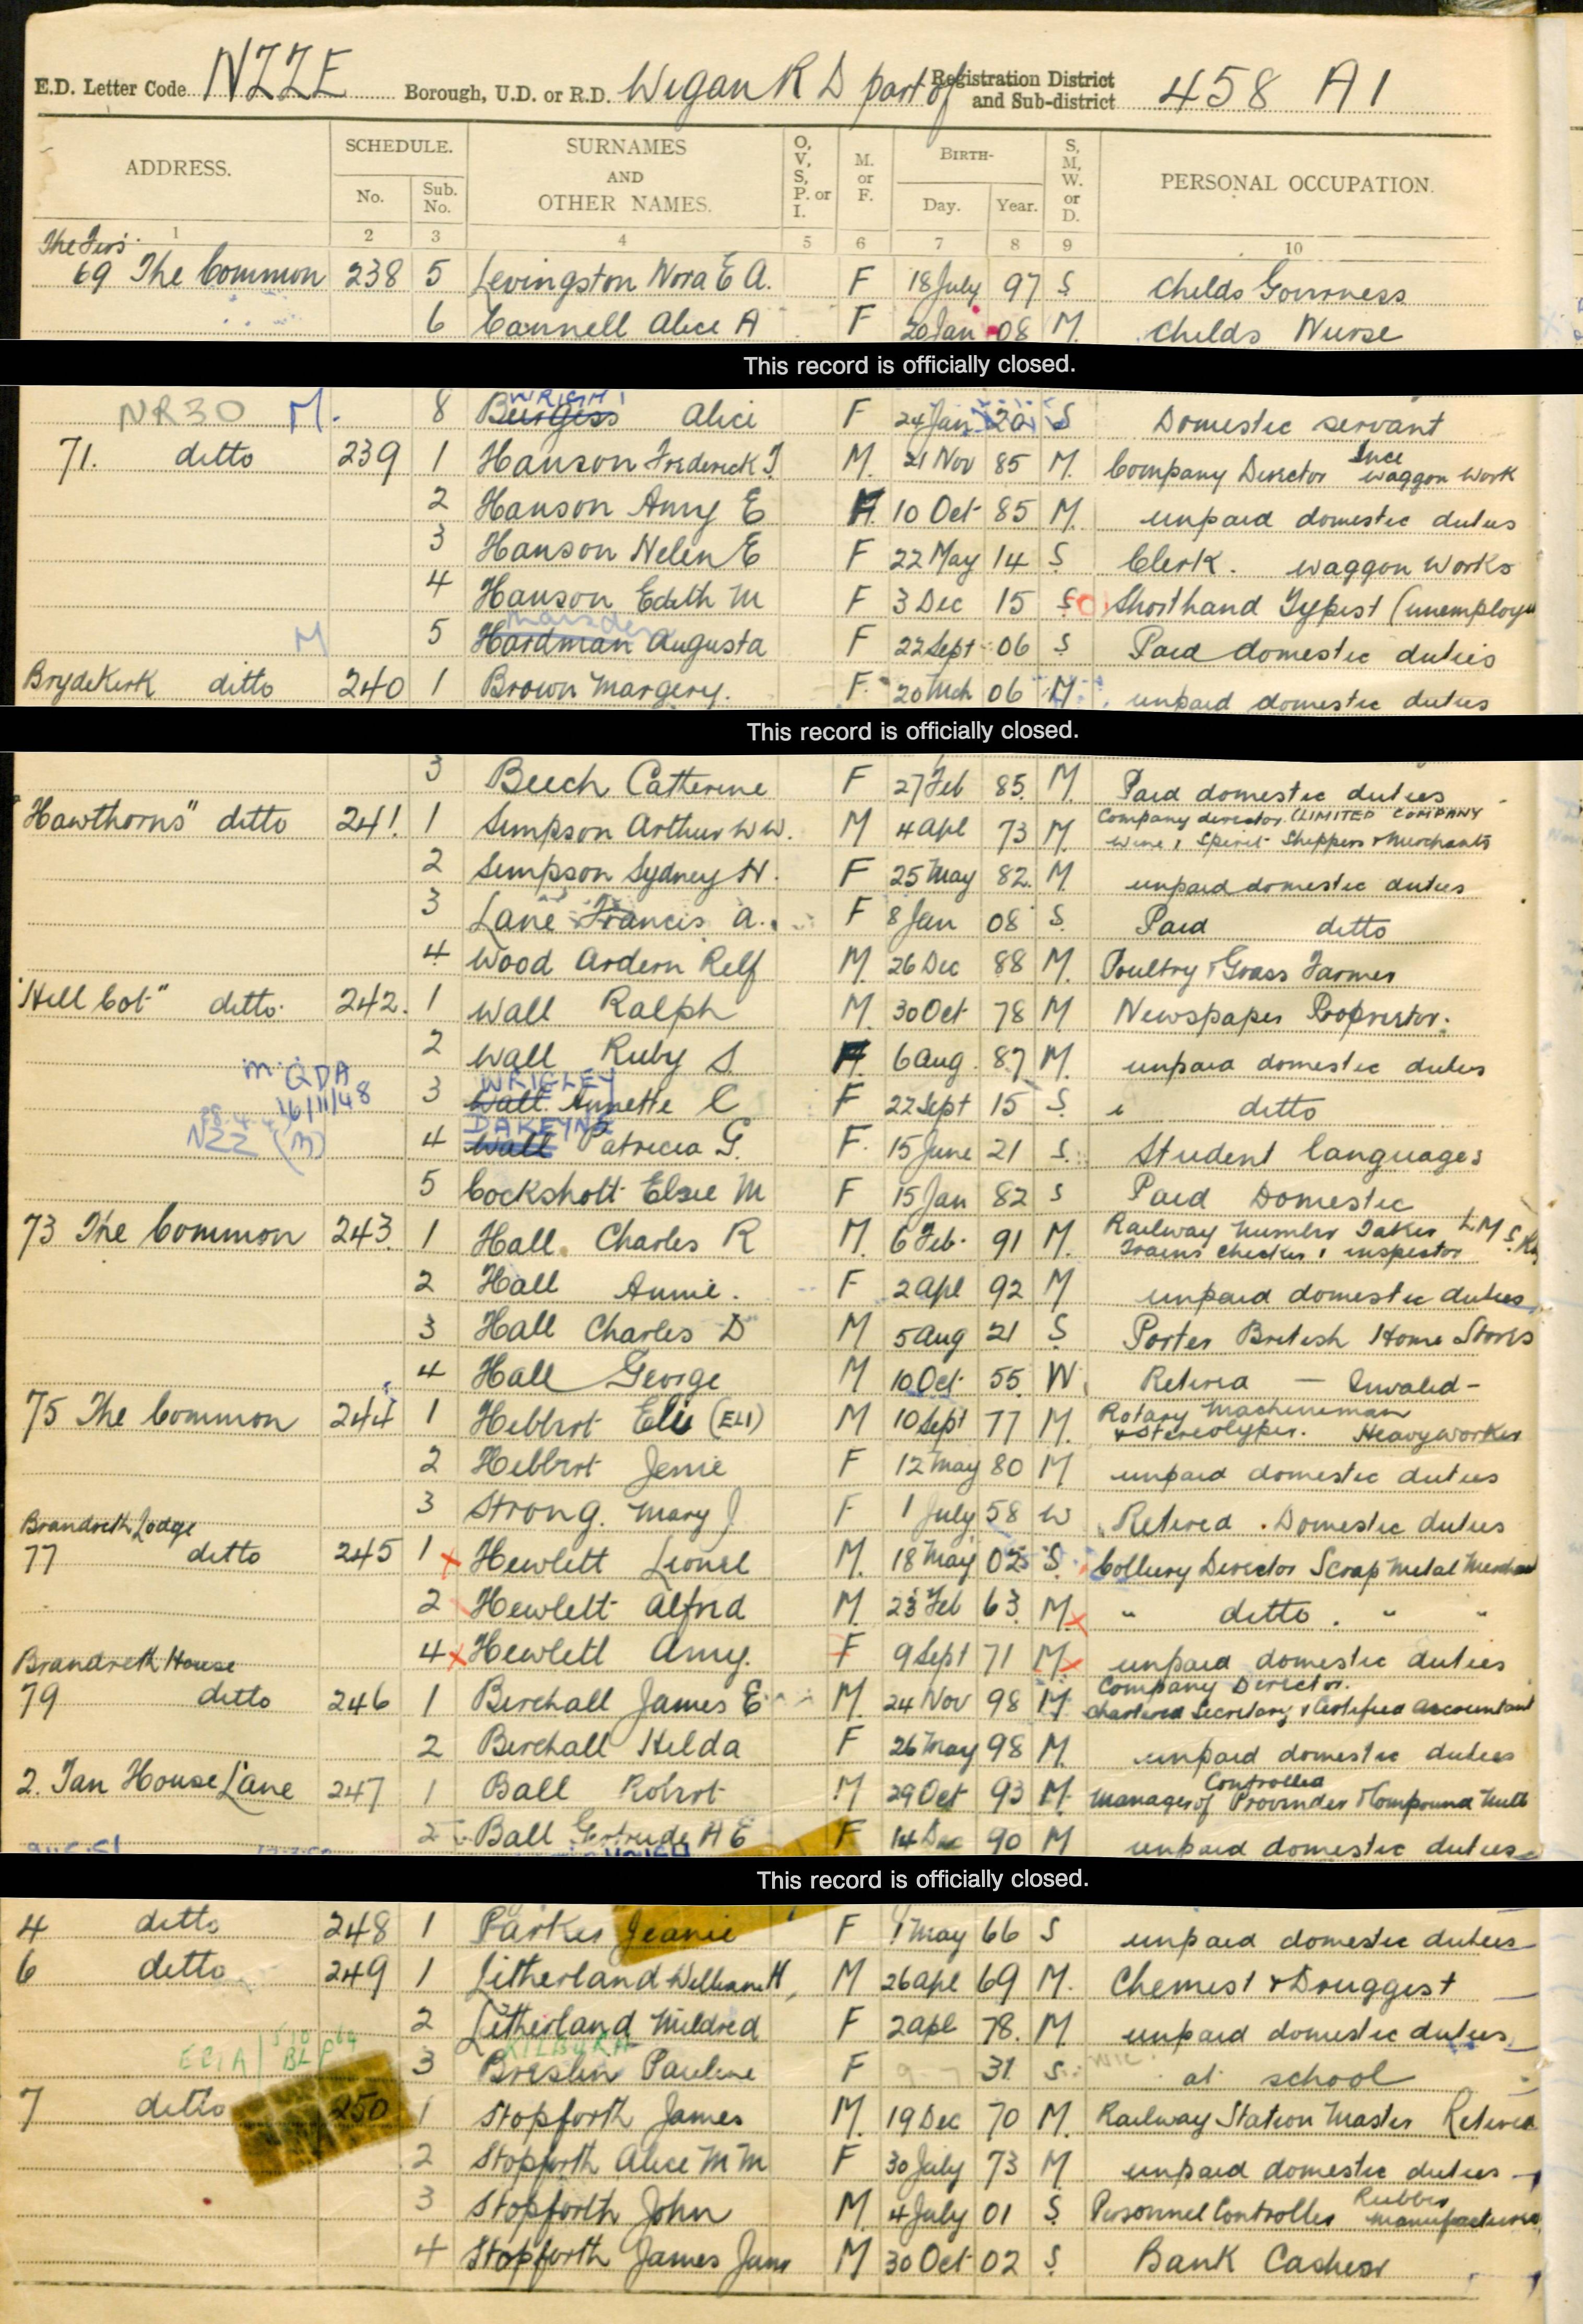 E.D. Letter Code NZZE Borough, U.D. or R.D. Wigan R D part of Registration District and Sub-district 458 A1
ADDRESS. SCHEDULE. No. Sub. No. SURNAMES AND OTHER NAMES. O, V, S, P. or I. M. or F. BIRTH- Day. Year. S, M, W. or D. PERSONAL OCCUPATION.
1 2 3 4 5 6 7 8 9 10
The Firs
69 The Common 238 5 Levingston Nora E A. F 18 July 97 S Childs Governess
6 Cannell Alice A F 20 Jan 08 M. Childs Nurse
This record is officially closed.
WRIGHT
NR30 M. 8 Burgess Alice F 24 Jan 20 S Domestic servant
71. ditto 239 1 Hanson Frederick J. M. 21 Nov 85 M. Company Director Ince Waggon Work
2 Hanson Amy E F. 10 Oct 85 M. unpaid domestic duties
3 Hanson Helen E F 22 May 14 S Clerk. Waggon Works
4 Hanson Edith M F 3 Dec 15 S Shorthand Typist (unemploy
Marsden
M 5 Hardman Augusta F 22 Sept 06 S Paid domestic duties
Brydekirk ditto 240 1 Brown Margery. F. 20 Mch 06 M unpaid domestic duties
This record is officially closed.
3 Beech Catherine F 27 Feb 85. M. Paid domestic duties
"Hawthorns" ditto 241. 1 Simpson Arthur W W. M 4 Apl 73 M. Company director (LIMITED COMPANY Wine & Spirit Shippers & Merchants
2 Simpson Sydney H. F 25 May 82. M unpaid domestic duties
3 Lane Francis A. F 8 Jan 08 S. Paid ditto
4 Wood Ardern Relf M. 26 Dec 88 M. Poultry & Grass Farmer
"Hill Cot" ditto 242. 1 Wall Ralph M. 30 Oct 78 M Newspaper Proprietor.
2 Wall Ruby S. F. 6 Aug. 87 M. unpaid domestic duties
WRIGLEY
m QDA 16/11/48 3 Wall Annette C F 22 Sept 15 S. ditto
DAKEYNE
NZZ (M) 4 Wall Patricia G. F. 15 June 21 S. Student languages
5 Cockshott Elsie M F 15 Jan 82 S Paid Domestic
73 The Common 243. 1 Hall Charles R M. 6 Feb. 91 M. Railway Number Taker L M S. Rly Trains checker & inspector
2 Hall Annie. F 2 Apl 92 M unpaid domestic duties
3 Hall Charles D M 5 Aug 21 S Porter British Home Stores
4 Hall George M 10 Oct 55. W. Retired — Invalid -
75 The Common 244 1 Hibbert Elie (ELI) M 10 Sept 77 M. Rotary Machineman & Stereotyper. Heavy worker
2 Hibbert Jenie F 12 May 80 M unpaid domestic duties
3 Strong. Mary J F 1 July 58 W Retired. Domestic duties
Brandreth Lodge
77 ditto 245 1 Hewlett Lionel M. 18 May 02 S. Colliery Director Scrap Metal Merchant
2 Hewlett Alfred M. 23 Feb 63. M. " ditto. " "
4 Hewlett Amy. F 9 Sept 71 M. unpaid domestic duties
Brandreth House
79 ditto 246 1 Birchall James E M. 24 Nov 98 M. Company Director. Chartered Secretary & Certified Accountant
2 Birchall Hilda F 26 May 98 M. unpaid domestic duties
2. Tan House Lane 247 1 Ball Robert M 29 Oct 93 M. Controlled Manager of Provender & Compound Mill
2 Ball Gertrude A E F 14 Dec 90 M unpaid domestic duties
This record is officially closed.
4 ditto 248 1 Parker Jeanie F 1 May 66 S unpaid domestic duties
6 ditto 249 1 Litherland William H, M 26 Apl 69 M. Chemist & Druggist
2 Litherland Mildred F 2 Apl 78. M unpaid domestic duties
3 Breslin Pauline F 31. S. at school
7 ditto 250 1 Stopforth James M. 19 Dec 70 M. Railway Station Master Retired
2 Stopforth Alice M M F 30 July 73 M unpaid domestic duties
3 Stopforth John M. 4 July 01 S. Personnel Controller Rubber Manufacturers
4 Stopforth James Junr M 30 Oct 02 S. Bank Cashier